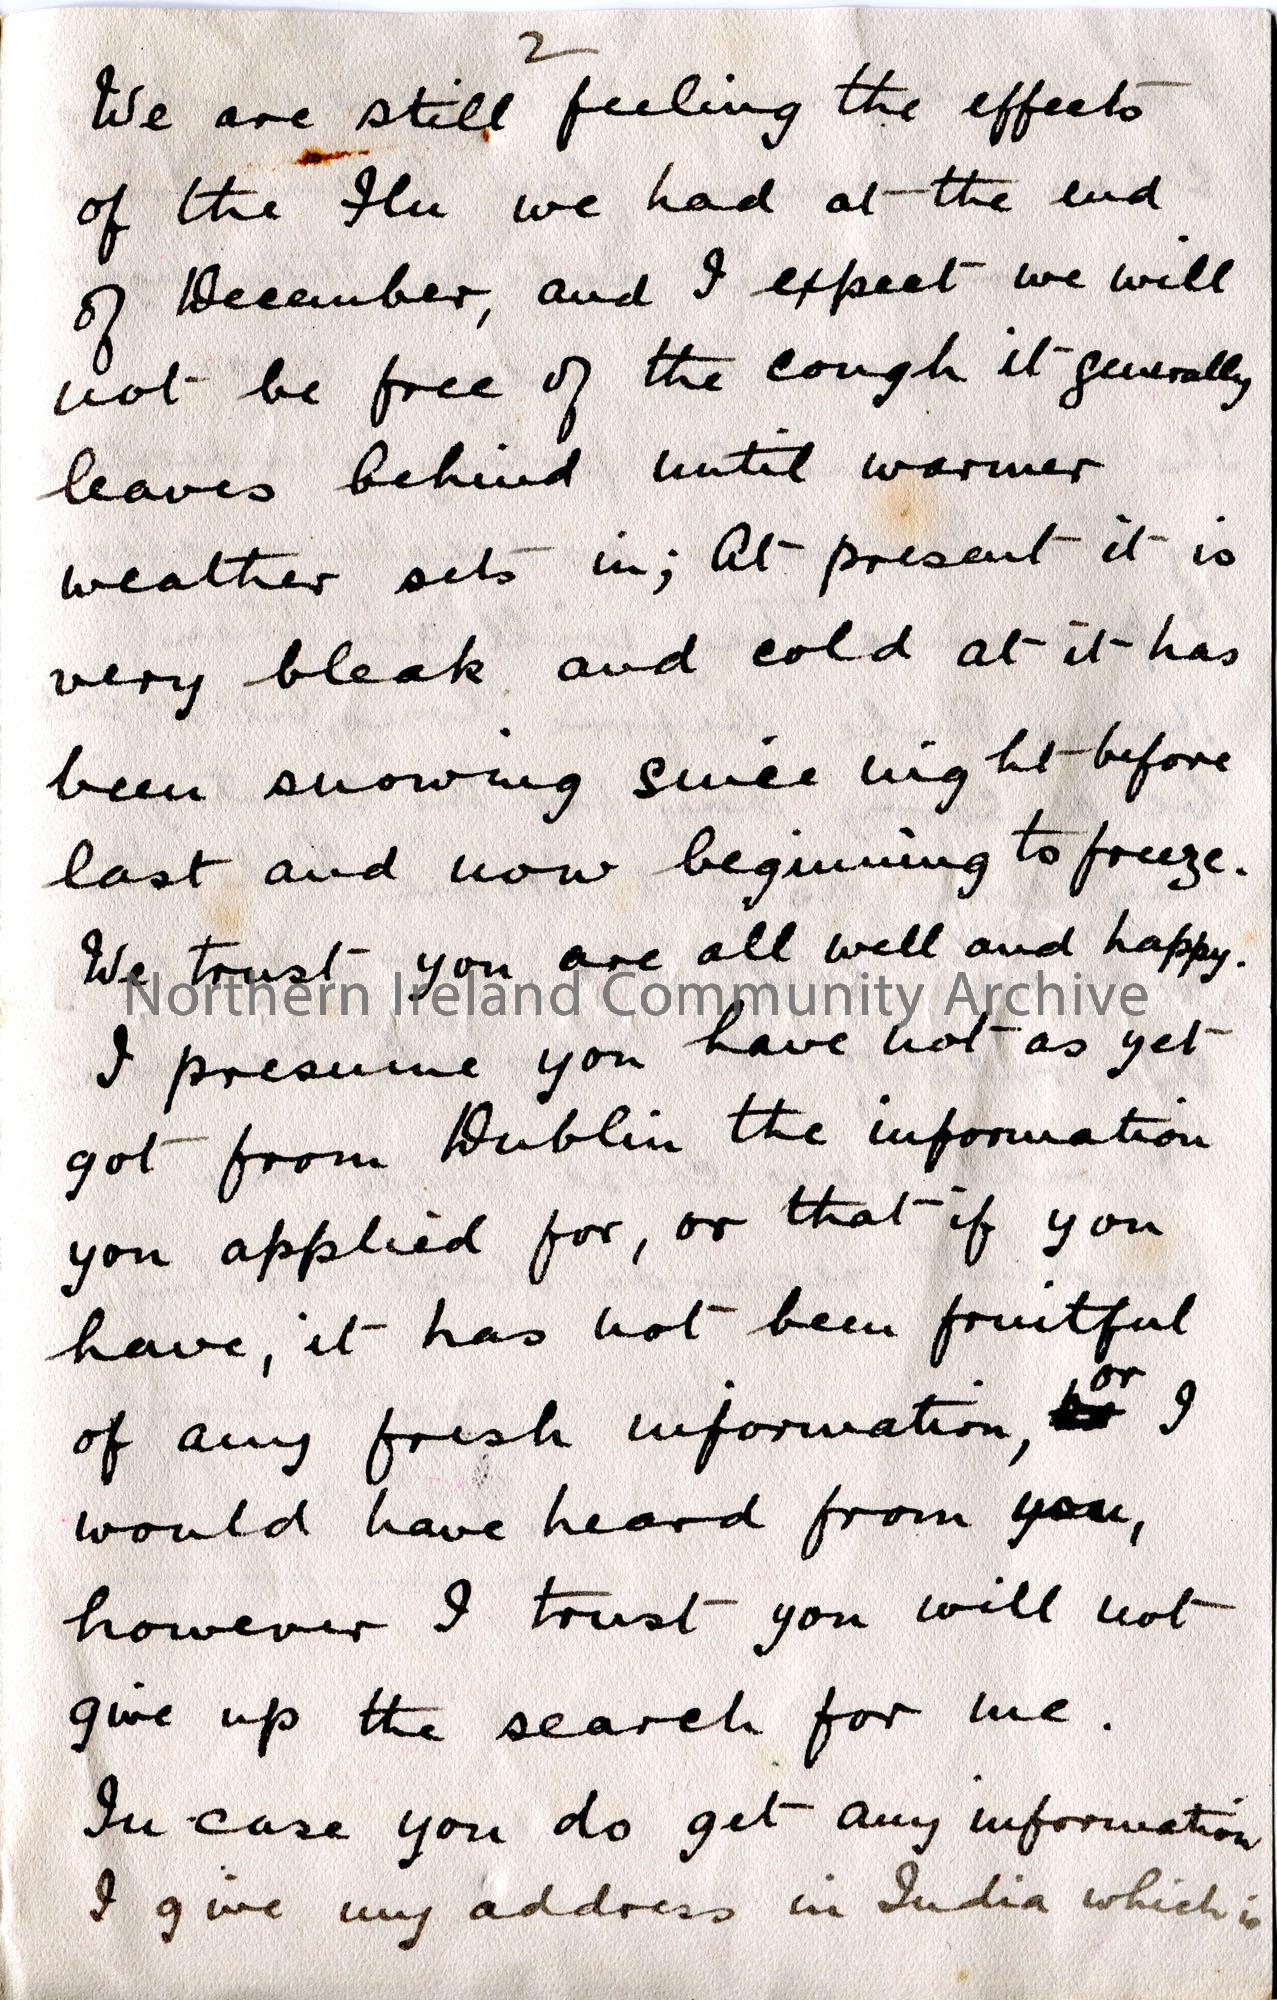 2
We are still feeling the effects
of the Flu we had at the end
of December, and I expect we will
not be free of the cough it generally
leaves behind until warmer
weather sets in; At present it is
very bleak and cold at it has
been snowing since night before
last and now beginning to freeze.
We trust you are all well and happy.
Northern Ireland Community Archive
I presume you have not as yet
got from Dublin the information
you applied for, or that if you
have, it has not been fruitful
of any fresh information, or I
would have heard from you,
however I trust you will not
give up the search for me.
In case you do get any information
I give my address in India which is